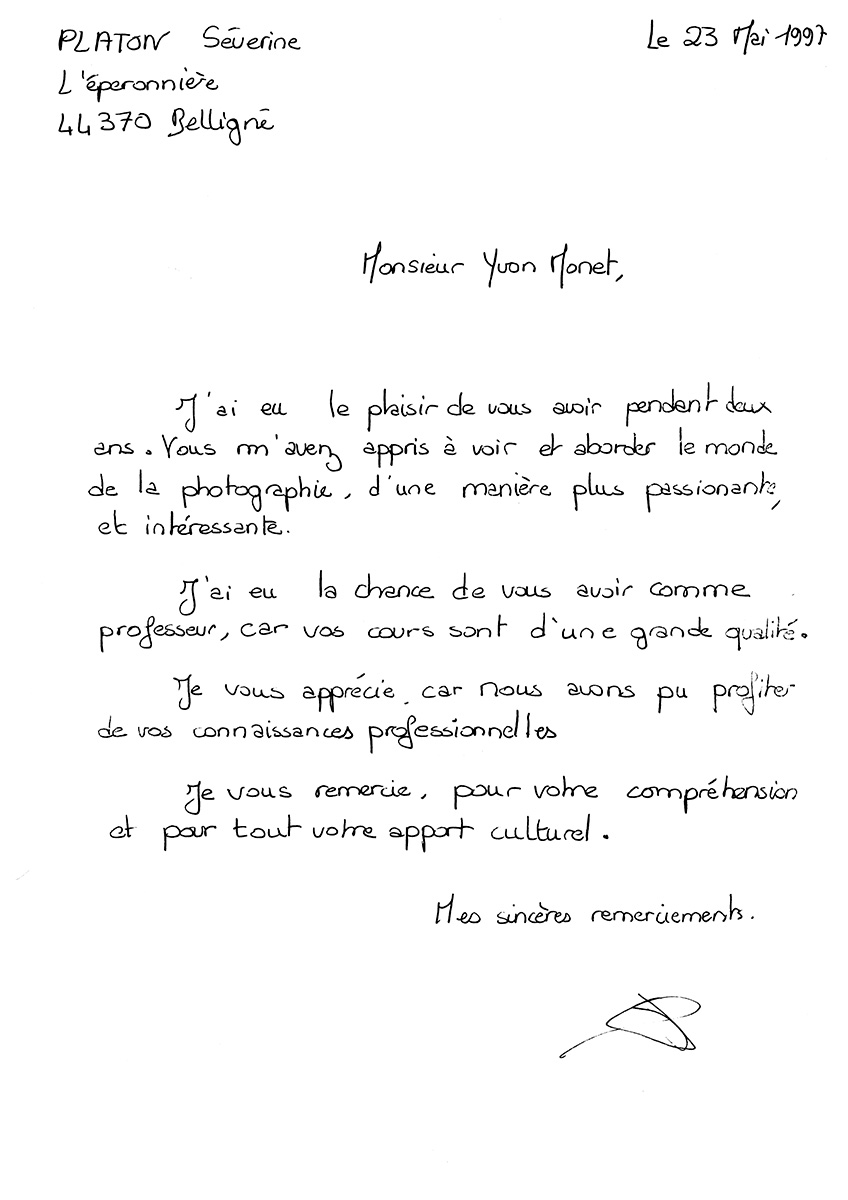 PLATON Séverine
Le 23 Mai 1997
L'éperonnière
44370 Belligné
Monsieur Yvon Monet,
J'ai eu le plaisir de vous avoir pendant deux
ans. Vous m'avez appris à voir et aborder le monde
de la photographie, d'une manière plus passionante,
et intéressante.
J'ai eu la chance de vous avoir comme
professeur, car vos cours sont d'une grande qualité.
Je vous apprécie, car nous avons pu profiter
de vos connaissances professionnelles
Je vous remercie, pour votre compréhension
et pour tout votre apport culturel.
Mes sincères remerciements.